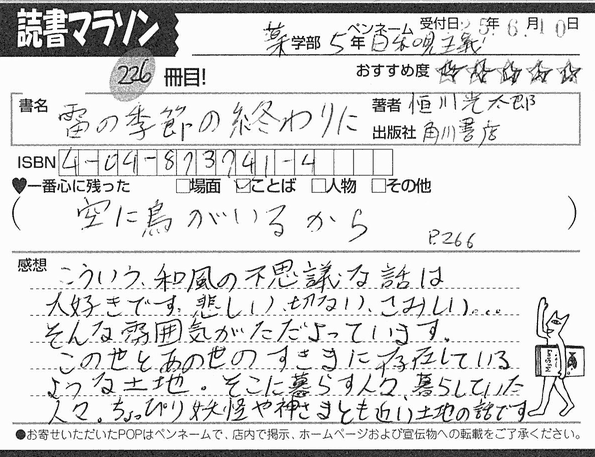 読書マラソン
薬学部 5年 ペンネーム 自由現主義 受付日 25年6月10日
226冊目!
おすすめ度 ☆☆☆☆☆
書名 雷の季節の終わりに
著者 恒川光太郎
出版社 角川書店
ISBN 4-04-873741-4
♥一番心に残った □場面 ☑ことば □人物 □その他
(空に鳥がいるから P.266)
感想
こういう、和風の不思議な話は
大好きです。悲しい、切ない、さみしい…
そんな雰囲気がただよっています。
この世とあの世のすきまに存在している
ような土地。そこに暮らす人々、暮らしていた
人々。ちょっぴり妖怪や神さまとも近い土地の話です
●お寄せいただいたPOPはペンネームで、店内で掲示、ホームページおよび宣伝物への転載をご了承ください。